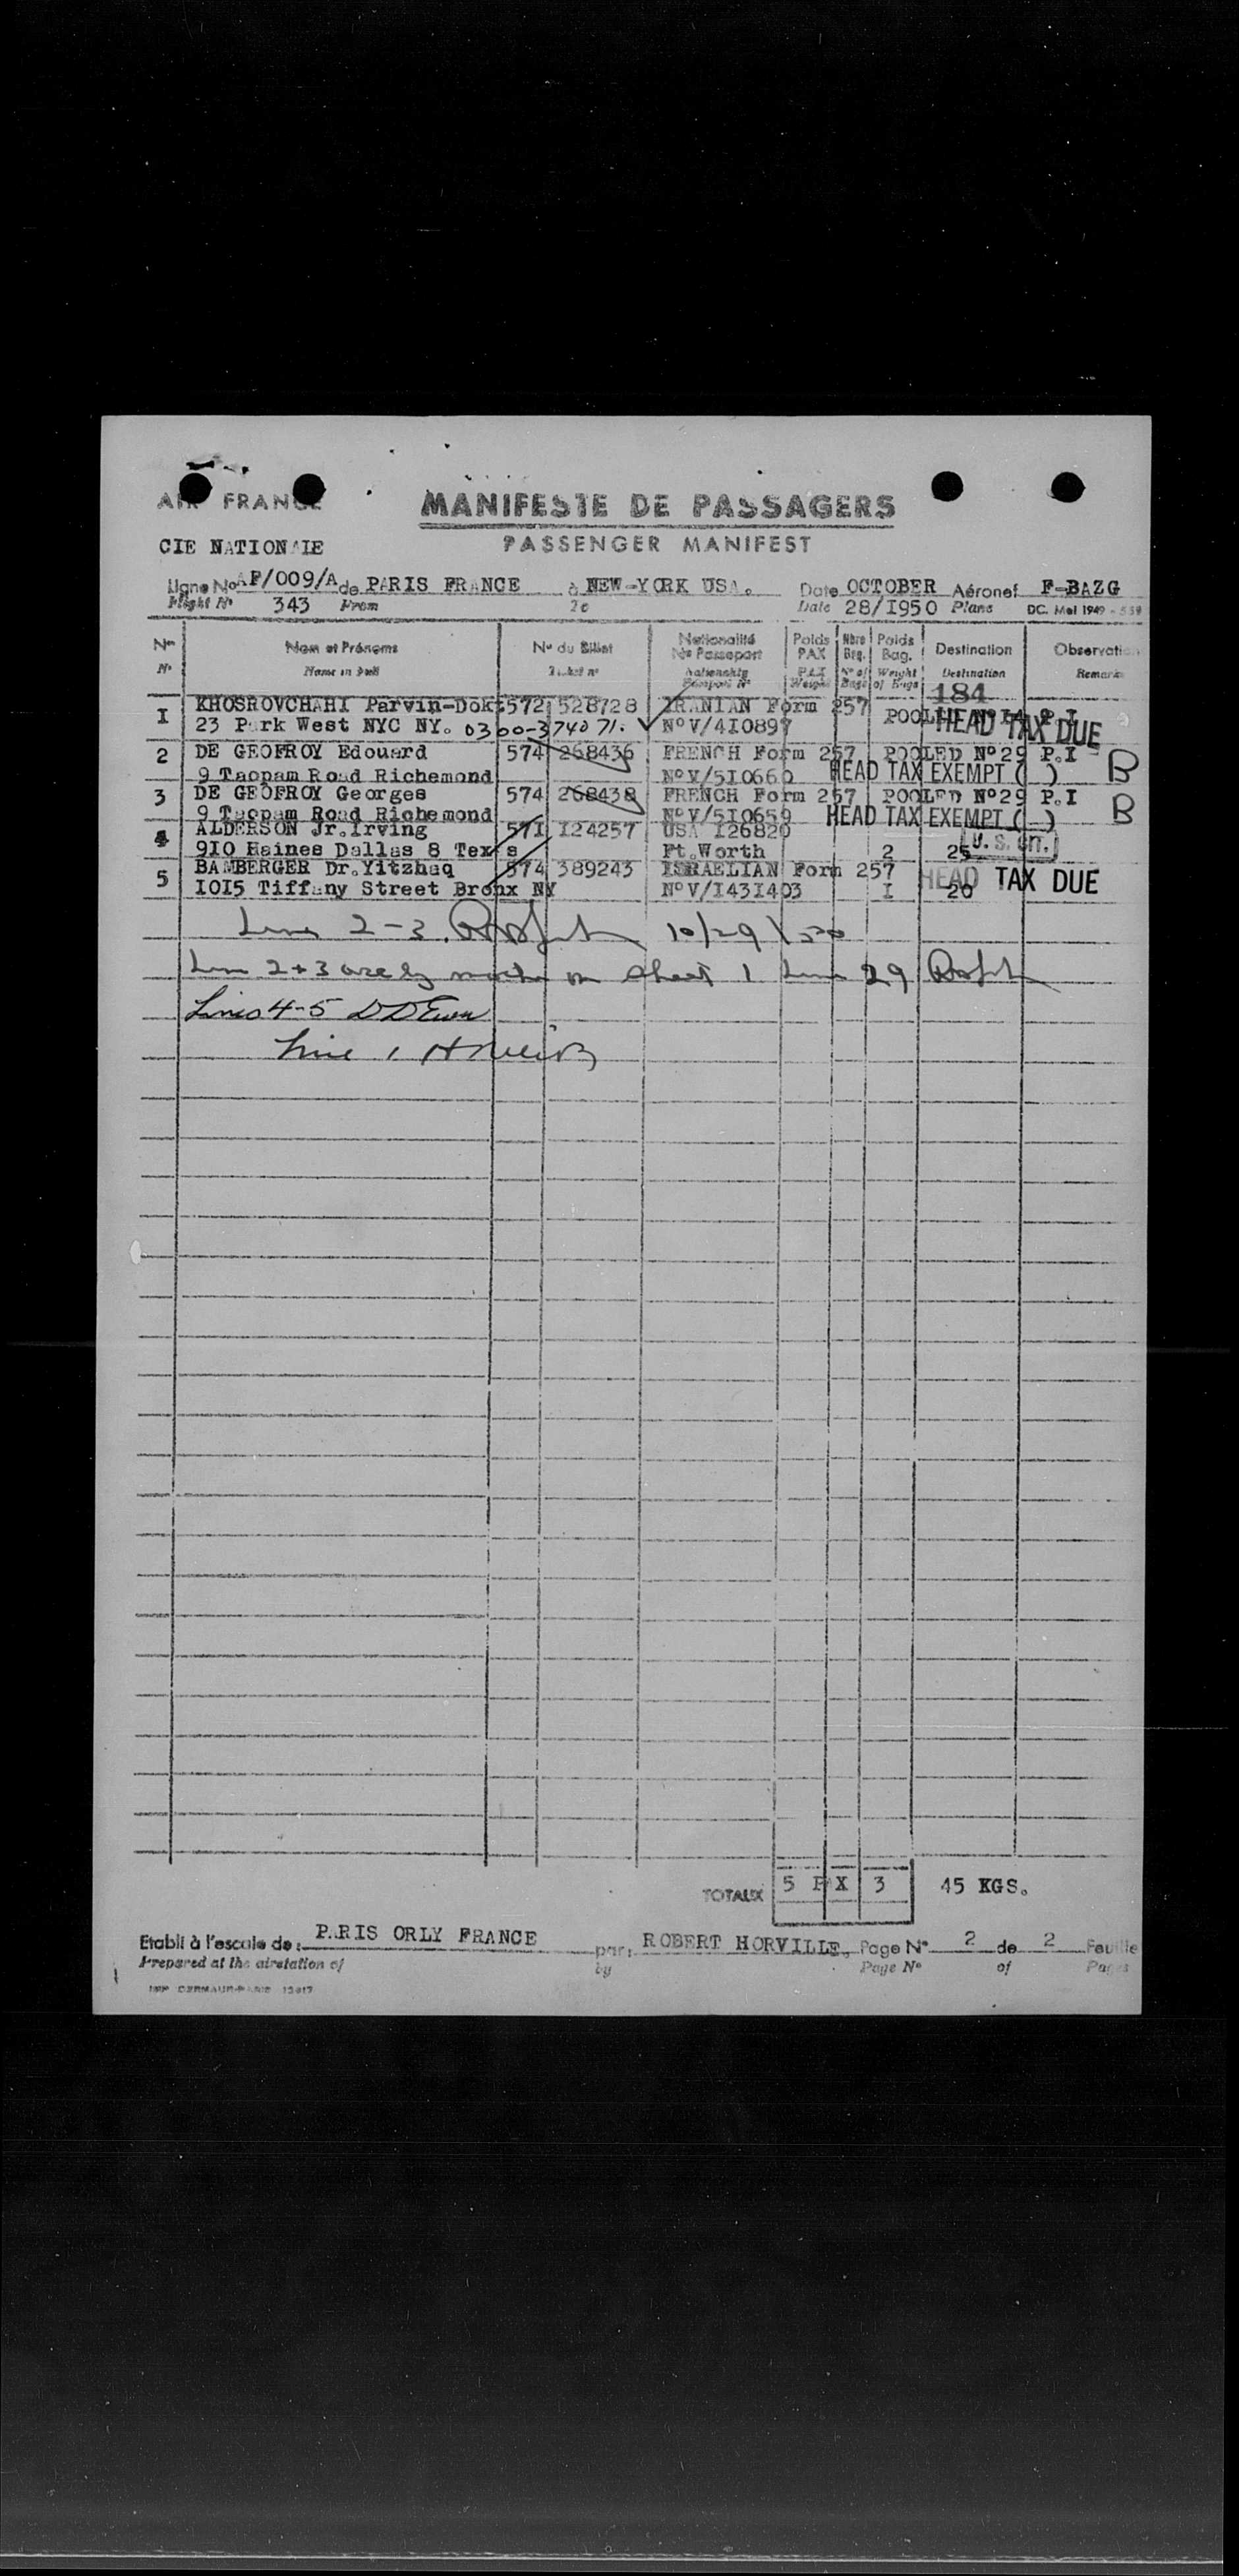 AIR FRANCE
MANIFESTE DE PASSAGERS
CIE NATIONAIE
PASSENGER MANIFEST
Ligne No AF/009/A de PARIS FRANCE à NEW-YORK USA. Date OCTOBER Aéronef F-BAZG
Flight N° 343 From To Date 28/I950 Plane DC. Mel 1949
Nos Nom et Prénoms N° du Billet Nationalité Poids Nbre Poids Destination Observation
No Passeport PAX Bag. Bag.
N° Name in full Ticket n° Nationality PAX N° of Weight Destination Remarks
Passport N° Weight Bags of Bags
184
I KHOSROVCHAHI Parvin-Dokt 572 528728 IRANIAN Form 257 POOLED N°I4 P.I
23 Park West NYC NY. 0300-374071. N°V/4I0897 HEAD TAX DUE
2 DE GEOFROY Edouard 574 268436 FRENCH Form 257 POOLED N°29 P.I B
9 Taopam Road Richemond N°V/5I0660 HEAD TAX EXEMPT ( )
3 DE GEOFROY Georges 574 268438 FRENCH Form 257 POOLED N°29 P.I B
9 Taopam Road Richemond N°V/5I0659 HEAD TAX EXEMPT ( )
4 ALDERSON Jr.Irving 57I I24257 USA I26820
9IO Haines Dallas 8 Texas Ft.Worth 2 25 U. S. CIT.
5 BAMBERGER Dr.Yitzhaq 574 389243 ISRAELIAN Form 257 HEAD TAX DUE
IOI5 Tiffany Street Bronx NY N°V/I43I403 I 20
Line 2-3. 10/29/50
Line 2+3 on sheet 1 Line 29
Lines 4-5
Line 1
TOTAUX 5 PAX 3 45 KGS.
Etabli à l'escale de: PARIS ORLY FRANCE par: ROBERT HORVILLE. Page N° 2 de 2 Feuille
Prepared at the airstation of by Page N° of Pages